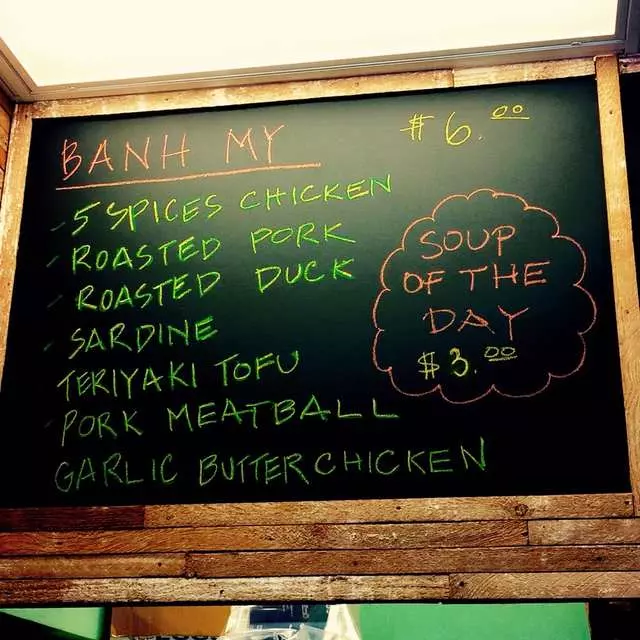 BANH MY $6.00
5 SPICES CHICKEN
ROASTED PORK
ROASTED DUCK
SARDINE
TERIYAKI TOFU
PORK MEATBALL
GARLIC BUTTER CHICKEN
SOUP
OF THE
DAY
$3.00